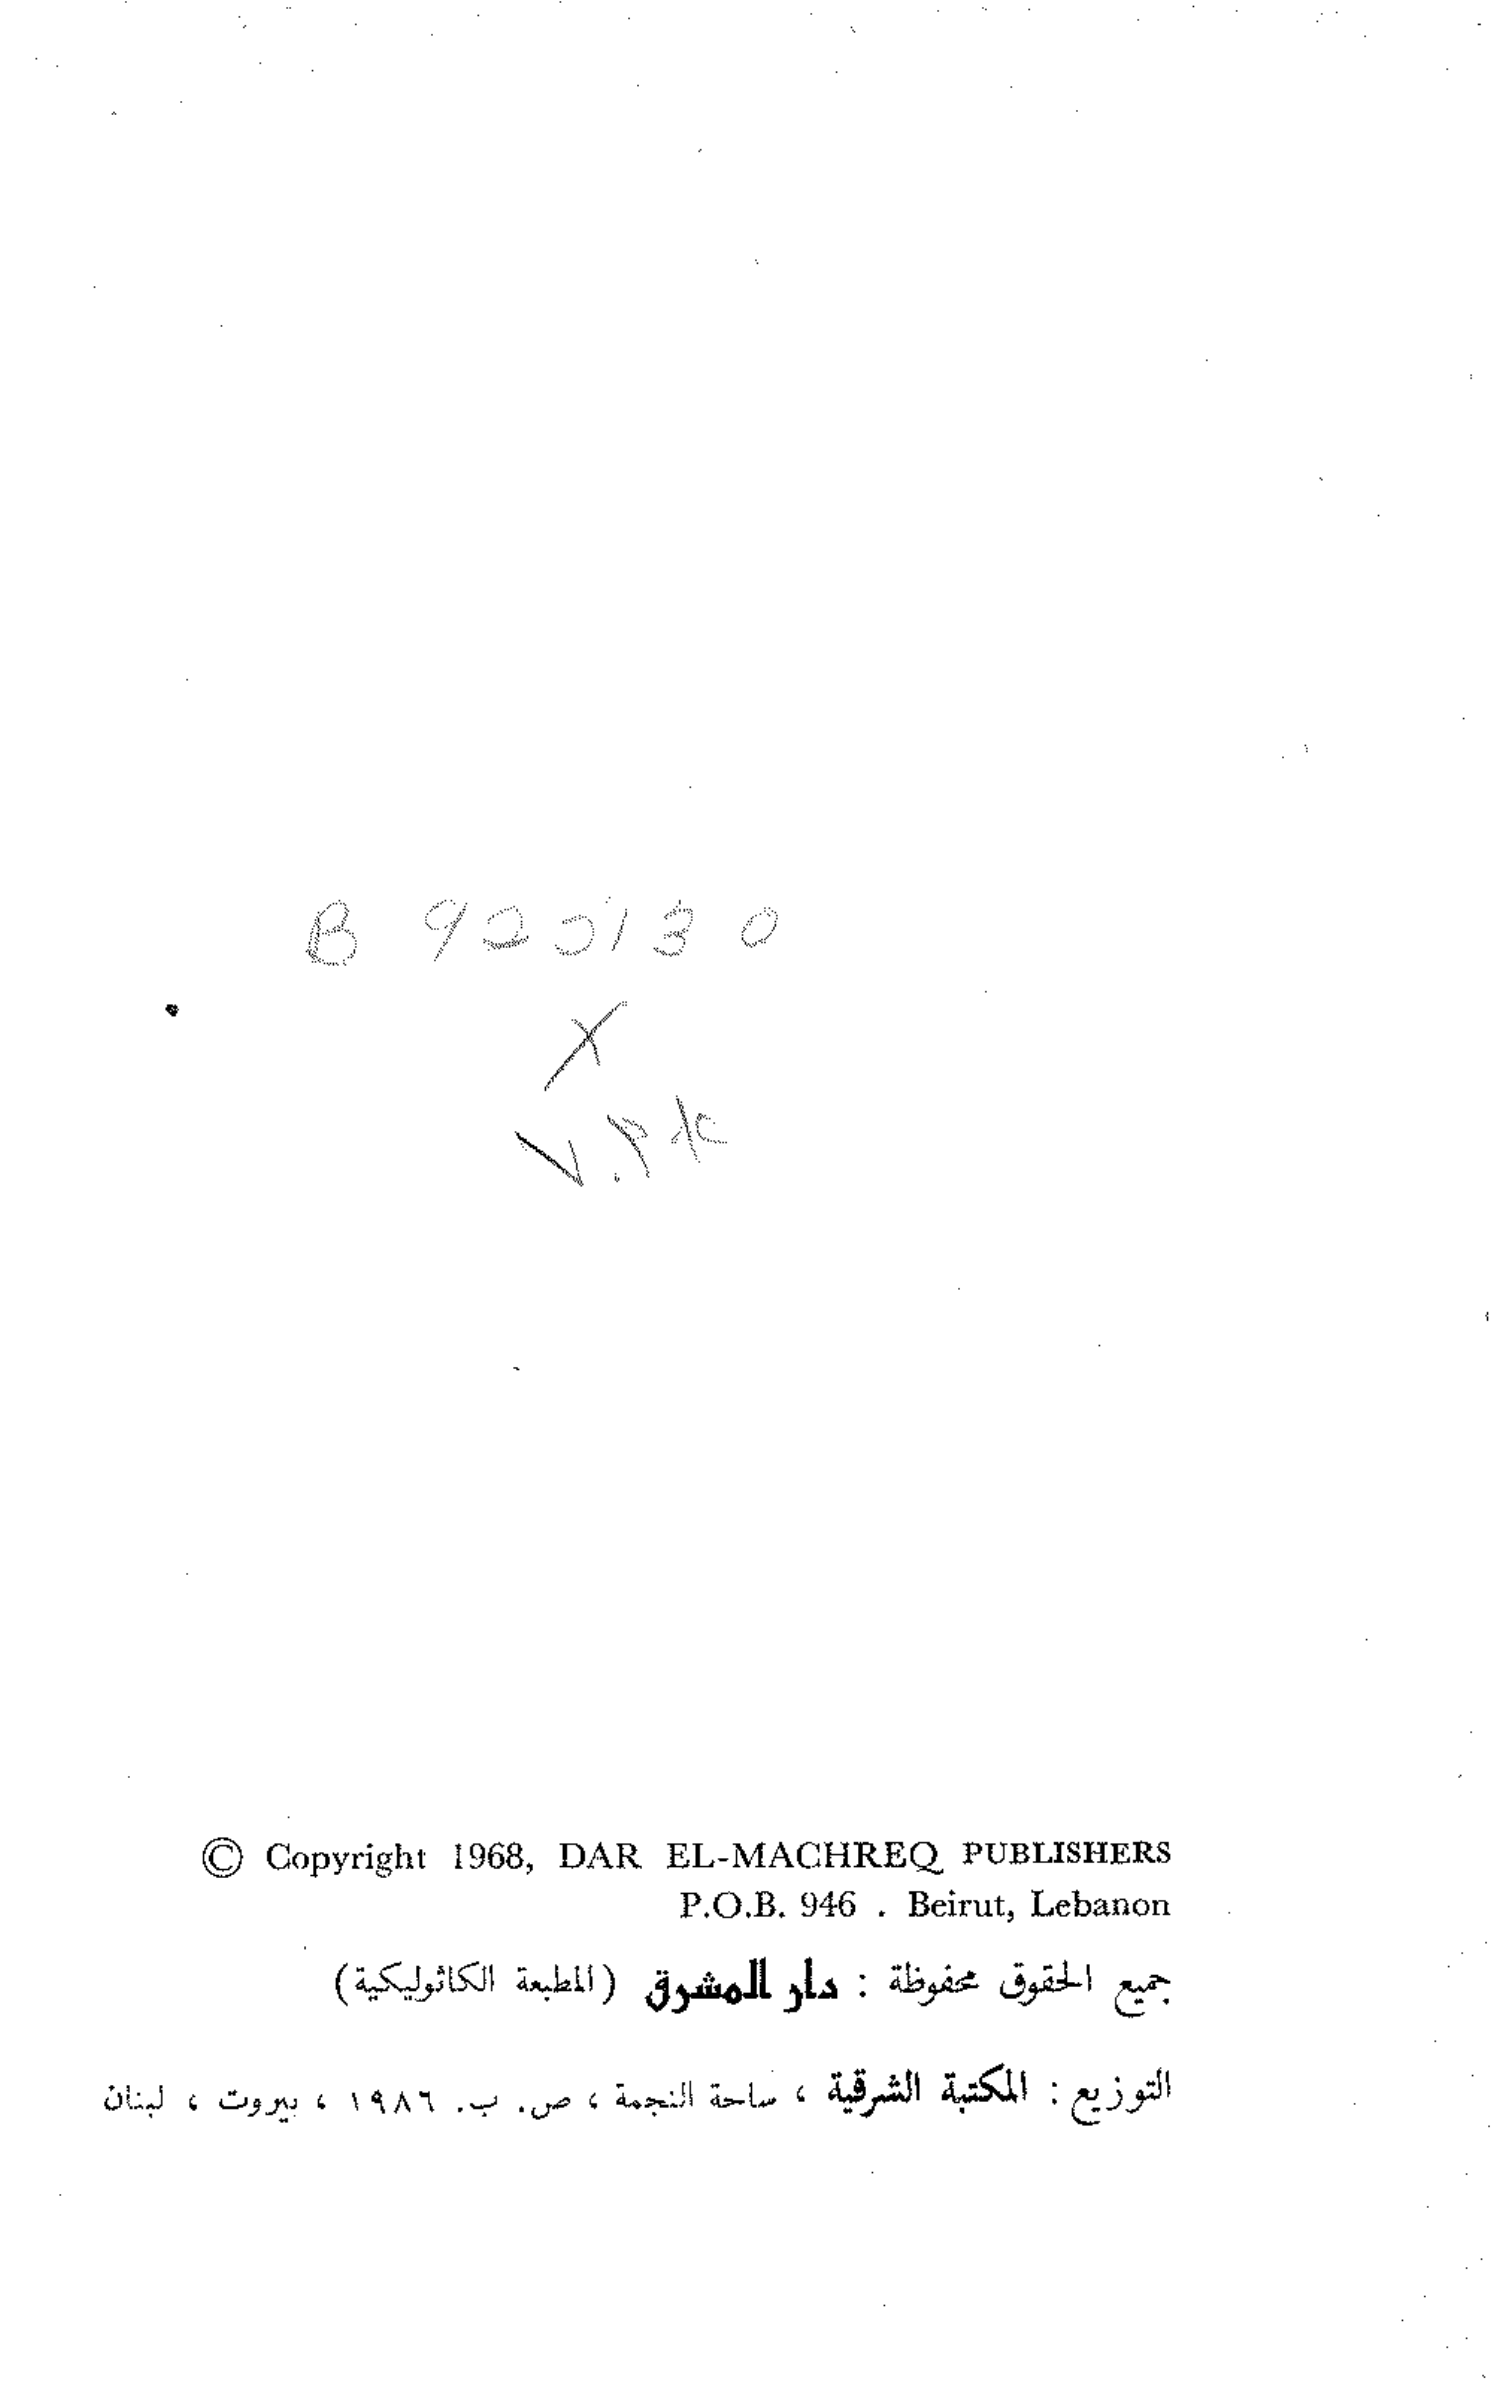 B 920130
X
© Copyright 1968, DAR EL-MACHREQ PUBLISHERS
P.O.B. 946 . Beirut, Lebanon
جميع الحقوق محفوظة : دار المشرق (المطبعة الكاثوليكية)
التوزيع : المكتبة الشرقية ، ساحة النجمة ، ص. ب. ١٩٨٦ ، بيروت ، لبنان